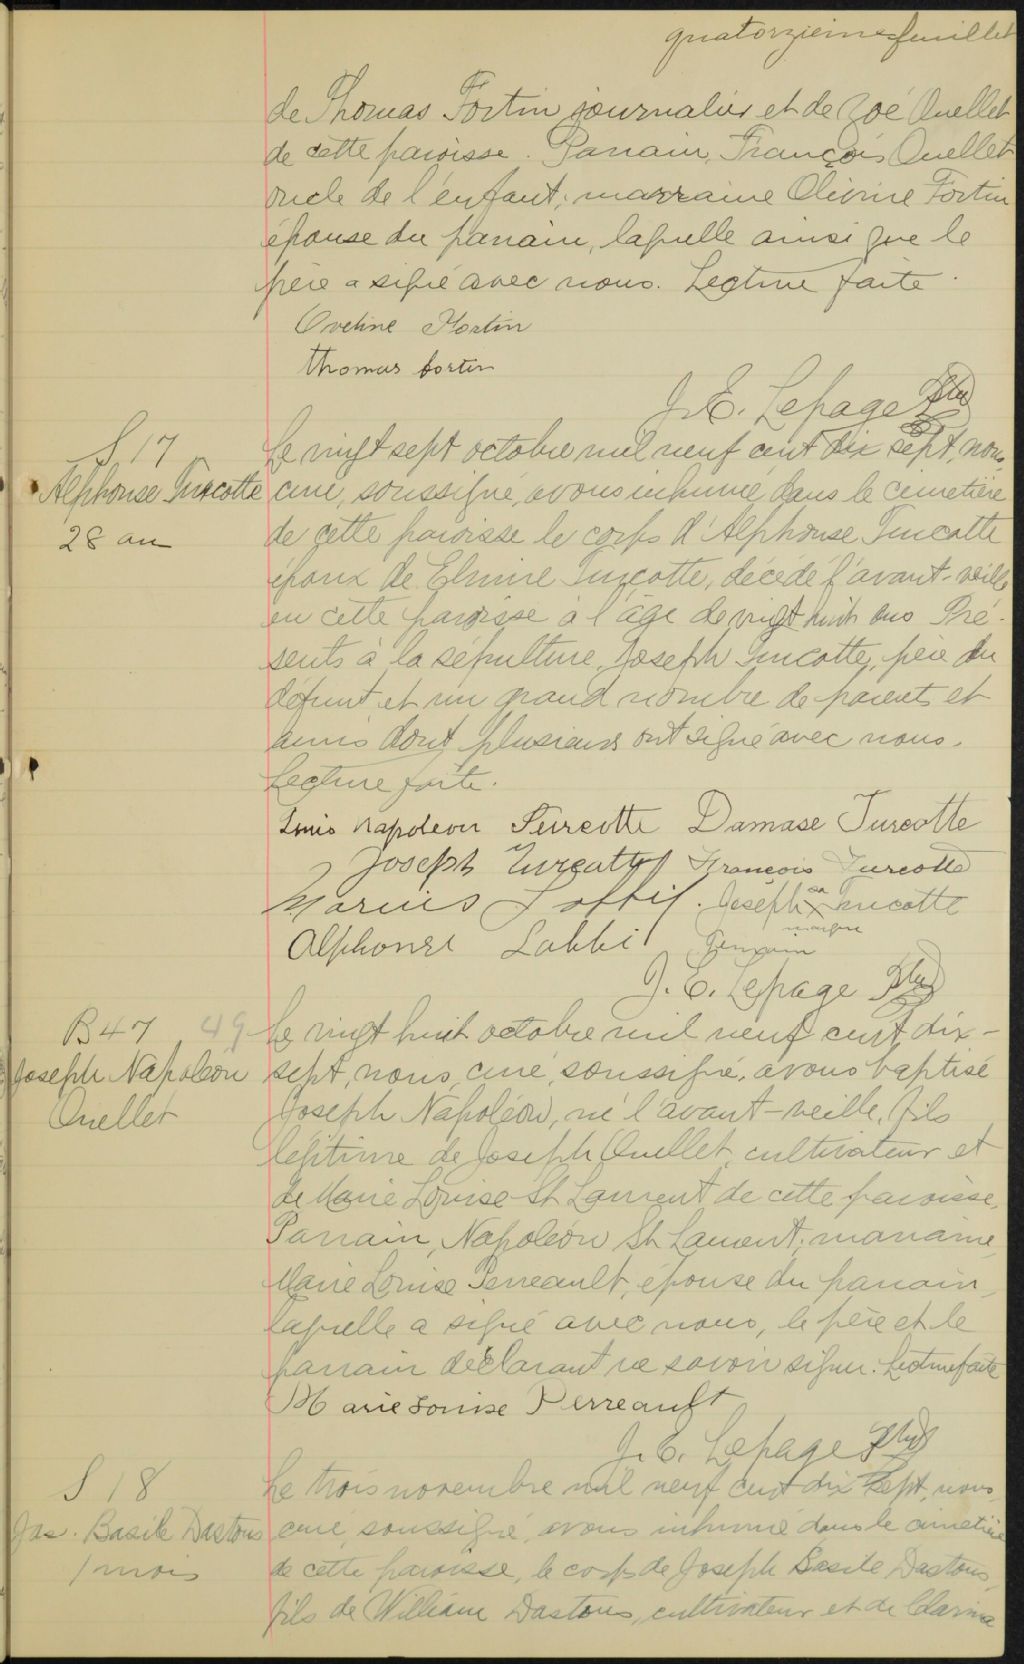 quatorzième feuillet
de Thomas Fortin journalier et de Zoé Ouellet
de cette paroisse. Parrain, François Ouellet
oncle de l'enfant; marraine Olivine Fortin
épouse du parrain, laquelle ainsi que le
père a signé avec nous. Lecture faite.
Oveline Fortin
Thomas fortin
J. E. Lepage Ptre
S 17
Alphonse Turcotte
28 an
Le vingt sept octobre mil neuf cent dix sept, nous,
curé, soussigné, avons inhumé dans le cimetière
de cette paroisse le corps d'Alphonse Turcotte
époux de Elmire Turcotte, décédé l'avant-veille
en cette paroisse à l'âge de vingt huit ans Pré-
sents à la sépulture, Joseph Turcotte, père du
défunt et un grand nombre de parents et
amis dont plusieurs ont signé avec nous.
Lecture faite.
Louis Napoleon Turcotte Damase Turcotte
Joseph Turcotte François Turcotte
Marius Joseph sa X Turcotte
marque
Alphonse Labbé Temoin
J. E. Lepage Ptre
B 47 49
Joseph Napoléon
Ouellet
Le vingt huit octobre mil neuf cent dix-
sept, nous, curé, soussigné, avons baptisé
Joseph Napoléon, né l'avant-veille, fils
légitime de Joseph Ouellet, cultivateur et
de Marie Louise St Laurent de cette paroisse,
Parrain, Napoléon St Laurent; marraine,
Marie Louise Perreault, épouse du parrain,
laquelle a signé avec nous, le père et le
parrain déclarant ne savoir signer. Lecture faite
Marie Louise Perreault
J. E. Lepage Ptre
S 18
Jos. Basile Dastous
1 mois
Le trois novembre mil neuf cent dix sept, nous,
curé, soussigné, avons inhumé dans le cimetière
de cette paroisse, le corps de Joseph Basile Dastous,
fils de William Dastous, cultivateur et de Clarina